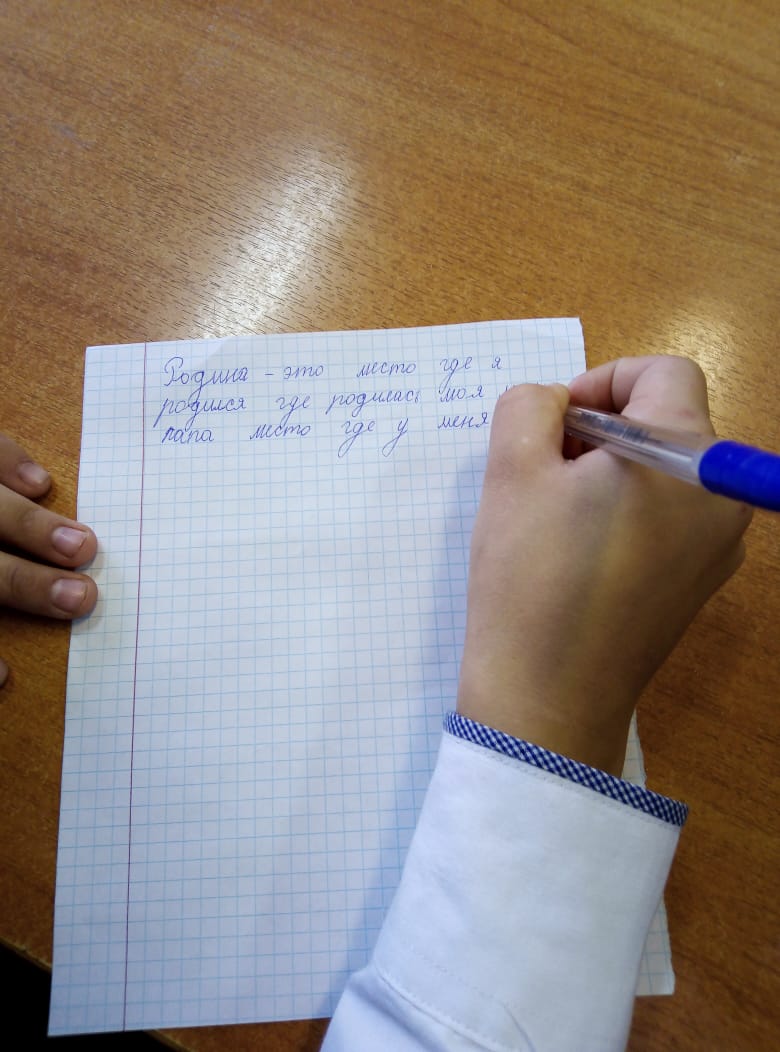 Родина – это место где я
родился где родилась моя
папа место где у меня